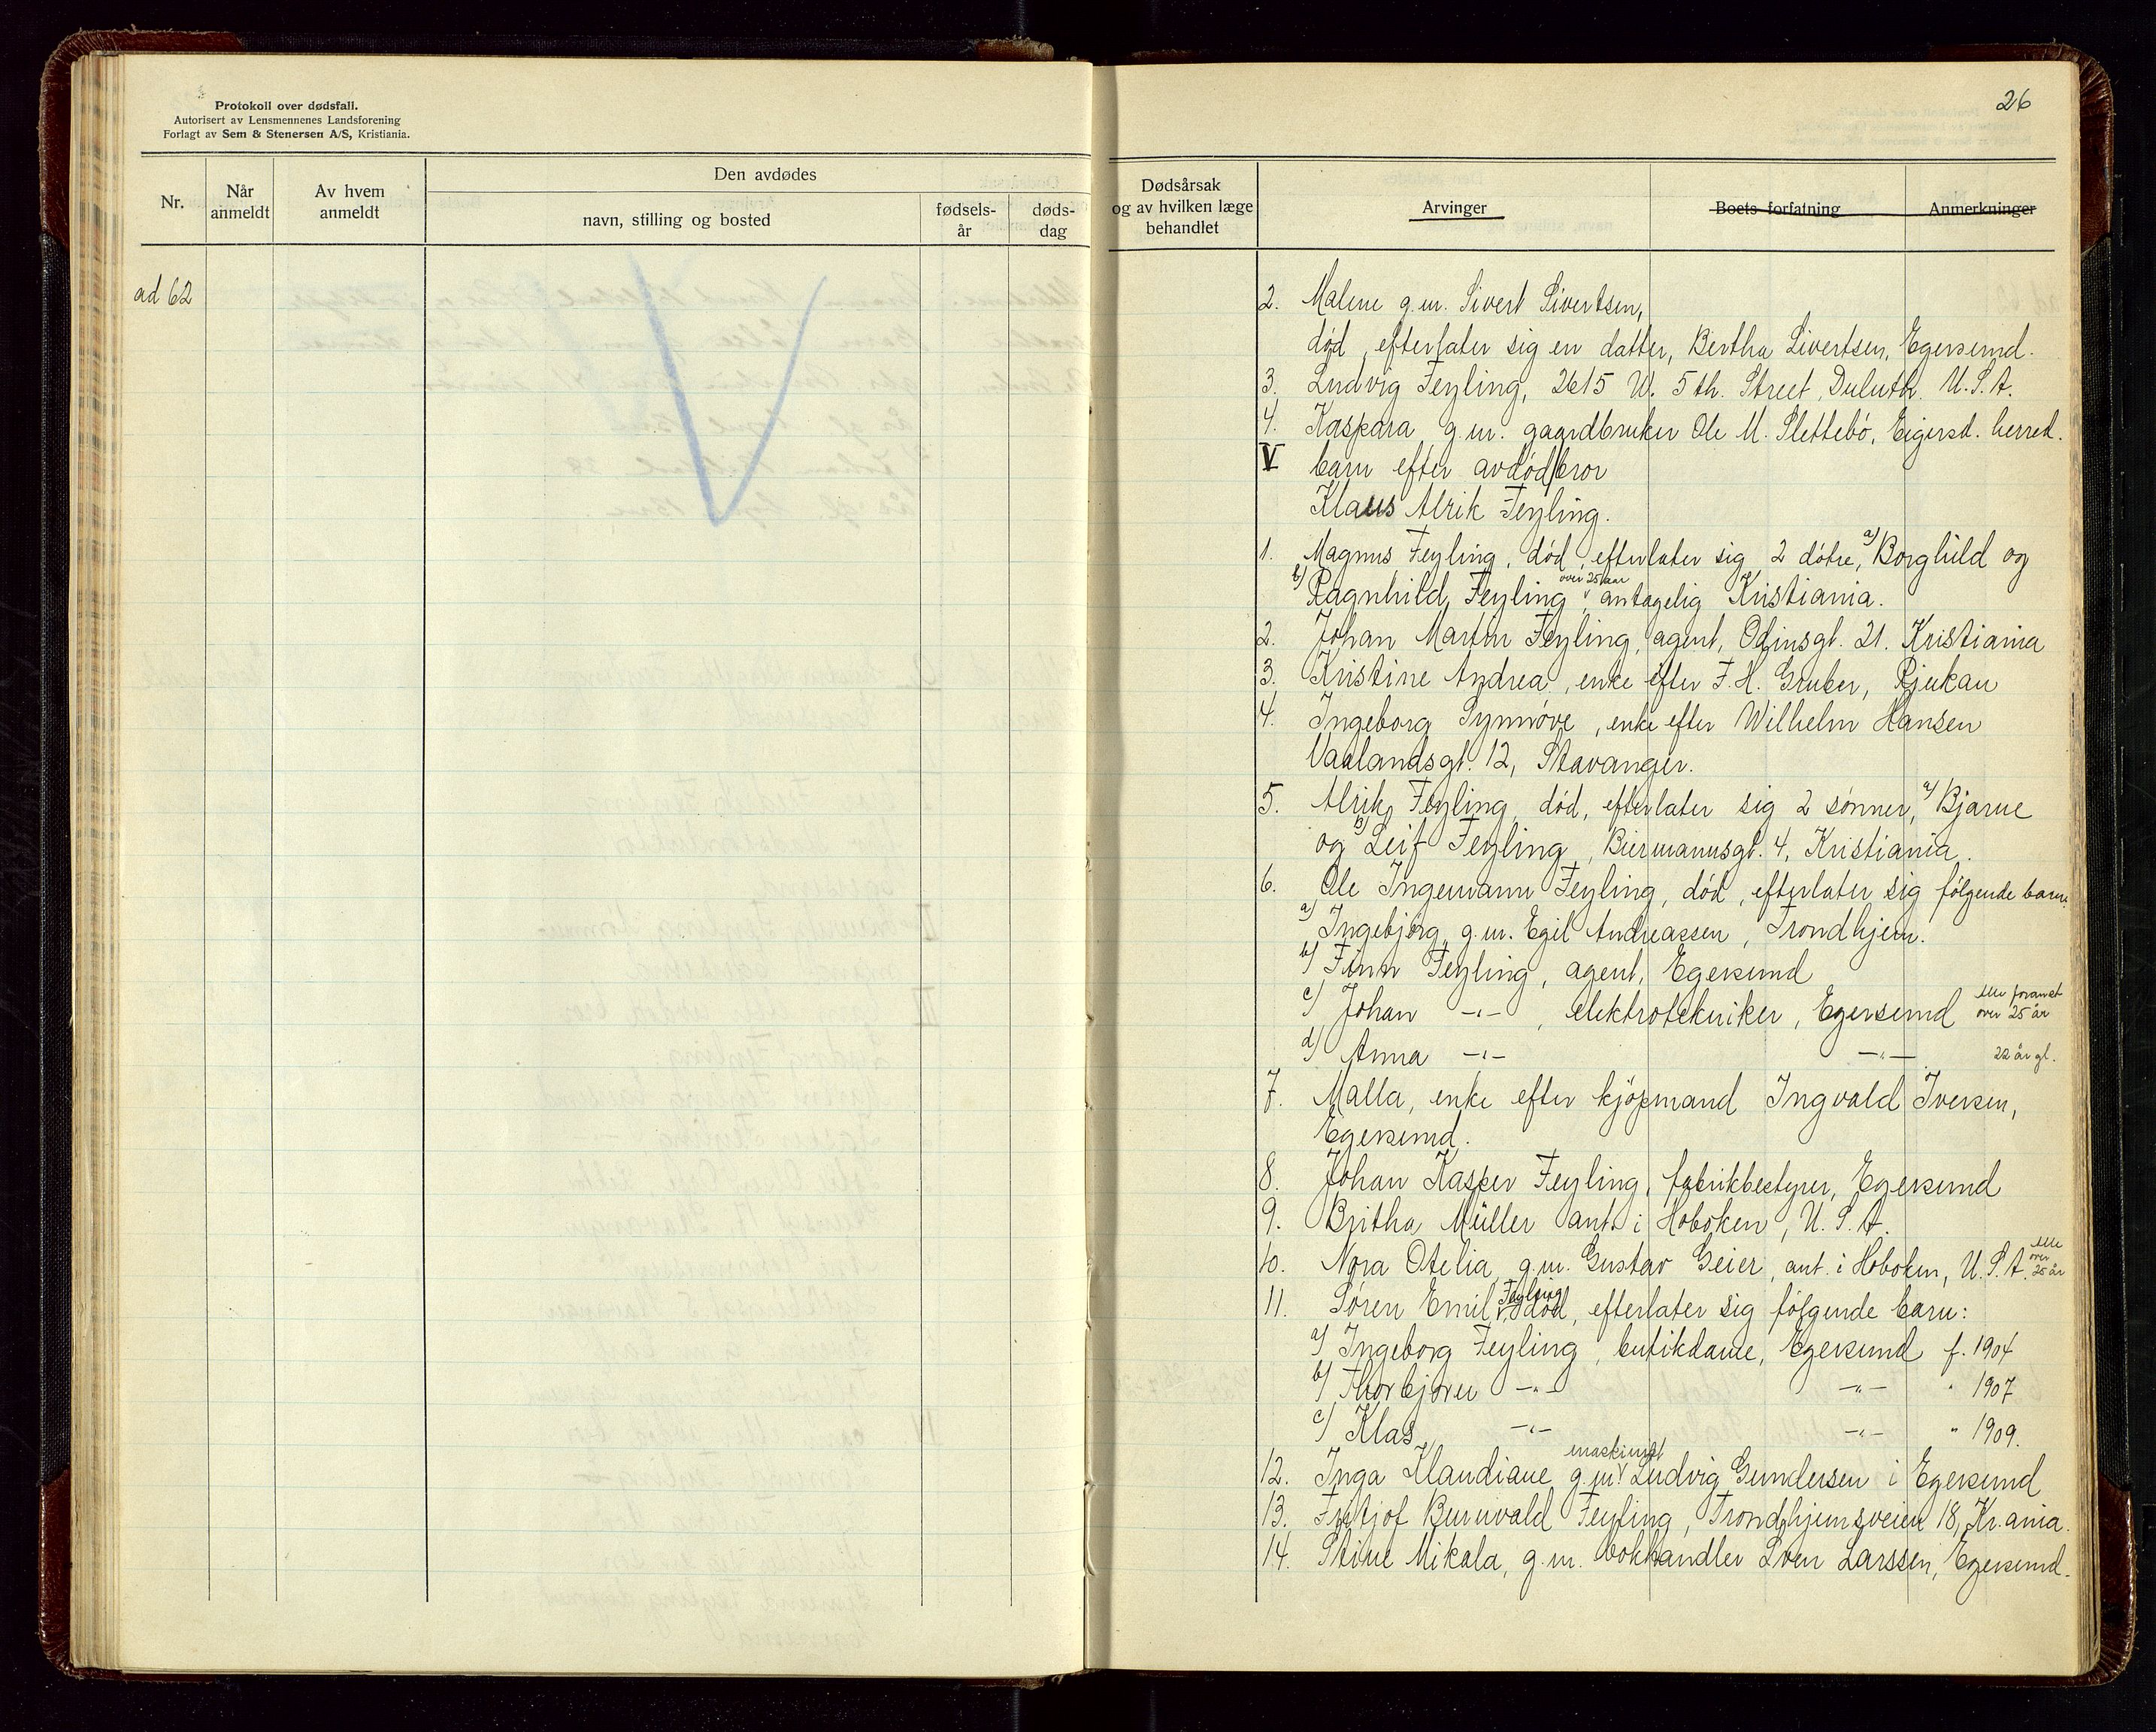 Protokoll over dødsfall.
Autorisert av Lensmennenes Landsforening
Forlagt av Sem & Stenersen A/S, Kristiania.
26
Nr.
Når anmeldt
Av hvem anmeldt
Den avdødes
navn, stilling og bosted
fødsels-år
døds-dag
Dødsårsak og av hvilken læge behandlet
Arvinger
Boets forfatning
Anmerkninger
ad 62
2. Malene g.m. Sivert Sivertsen,
død, efterlater sig en datter, Bertha Sivertsen, Egersund.
3. Ludvig Feyling, 2615 W. 5th. Street, Duluth. U.S.A.
4. Kaspara g.m. gaardbruker Ole M. Slettebö, Eigersd. herred.
V barn efter avdød bror
Klaus Alrik Feyling.
1. Magnus Feyling, död, efterlater sig 2 dötre, a) Borghild og
b) Ragnhild Feyling, over 25 aar antagelig Kristiania.
2. Johan Martin Feyling, agent, Odinsgt. 21. Kristiania
3. Kristine Andrea, enke efter F.H. Gruber, Rjukan
4. Ingeborg Synnöve, enke efter Wilhelm Hansen
Vaalandsgt. 12, Stavanger.
5. Alrik Feyling, död, efterlater sig 2 sönner, a) Bjarne
og b) Leif Feyling, Biermannsgt. 4, Kristiania.
6. Ole Ingemann Feyling, död, efterlater sig fölgende barn:
a) Ingebjörg, g.m. Egil Andreassen, Trondhjem.
b) Finn Feyling, agent, Egersund
c) Johan -"-, elektrotekniker, Egersund alle foranst over 25 år
d) Anna -"- -"- 22 år gl.
7. Malla, enke efter kjöpmand Ingvald Iversen,
Egersund.
8. Johan Kasper Feyling, fabrikbestyrer, Egersund
9. Britha Müller ant. i Hoboken, U.S.A.
10. Nora Otelia, g.m. Gustav Geier, ant. i Hoboken, U.S.A. alle over 25 år
11. Sören Emil Feyling, död, efterlater sig fölgende barn:
a) Ingeborg Feyling, butikdame, Egersund f. 1904
b) Thorbjörn -"- -"- " 1907
c) Klas -"- -"- " 1909.
12. Inga Klaudiane g.m. maskinist Ludvig Gundersen i Egersund
13. Fritjof Buruvald Feyling, Trondhjemsveien 18, Kr.ania.
14. Stine Mikala, g.m. bokhandler Sven Larssen, Egersund.